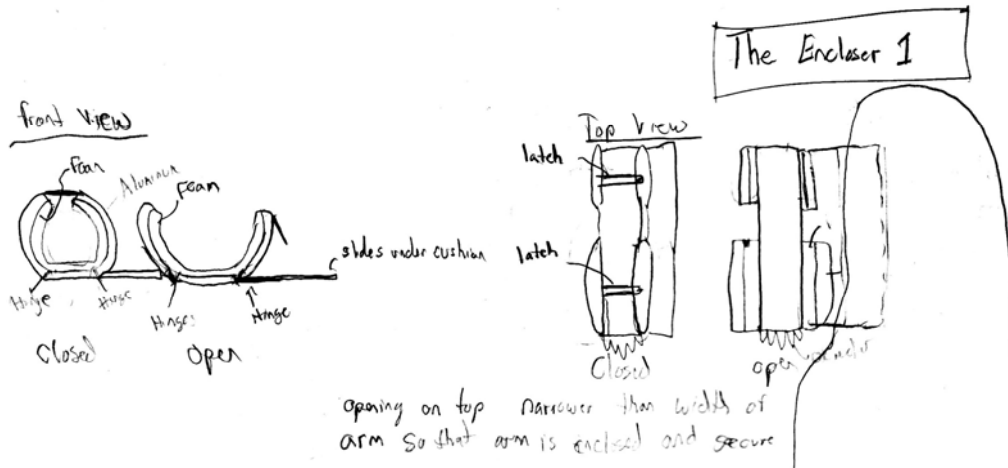 The Encloser 1
front View
Foam
Aluminum
Hinge
Hinge
Closed
Foam
slides under cushion
Hinge
Hinge
Open
Top View
latch
latch
Closed
open
opening on top narrower than width of
arm so that arm is enclosed and secure